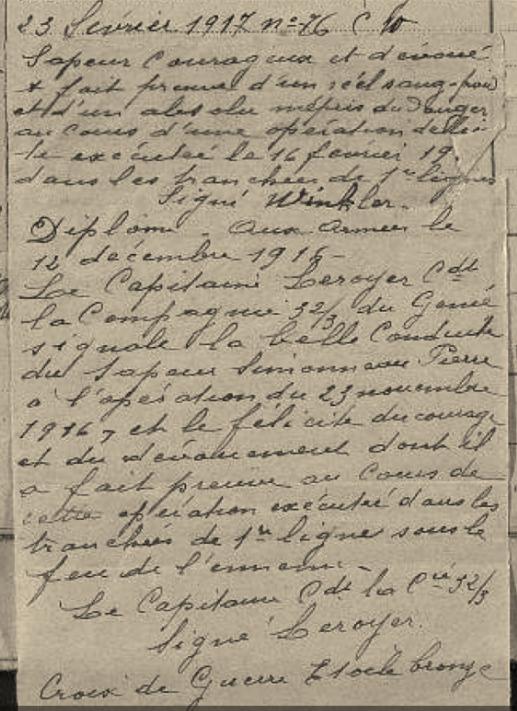 23 février 1917 no-76
Sapeur Courageux et dévoué
a fait preuve d'un réel sang-froid
et d'un absolu mépris du danger
au cours d'une opération délica-
te exécutée le 16 fevrier 19
dans les tranchées de 1re lignes
Signé Winkler.
Diplome - Aux Armées le
12 décembre 1916-
Le Capitaine Leroyer Cdt
la Compagnie 32/3 du Genié
signale la belle Conduite
du Sapeur Simonneau Pierre
a l'opération du 23 novembre
1916, et le félicite du courage
et du dévouement dont il
a fait preuve au Cours de
cette opération exécutée dans les
tranchées de 1re ligne sous le
feu de l'ennemi.-
Le Capitaine Cdt la Cie 32/3
Signé Leroyer.
Croix de Guerre Etoile bronze